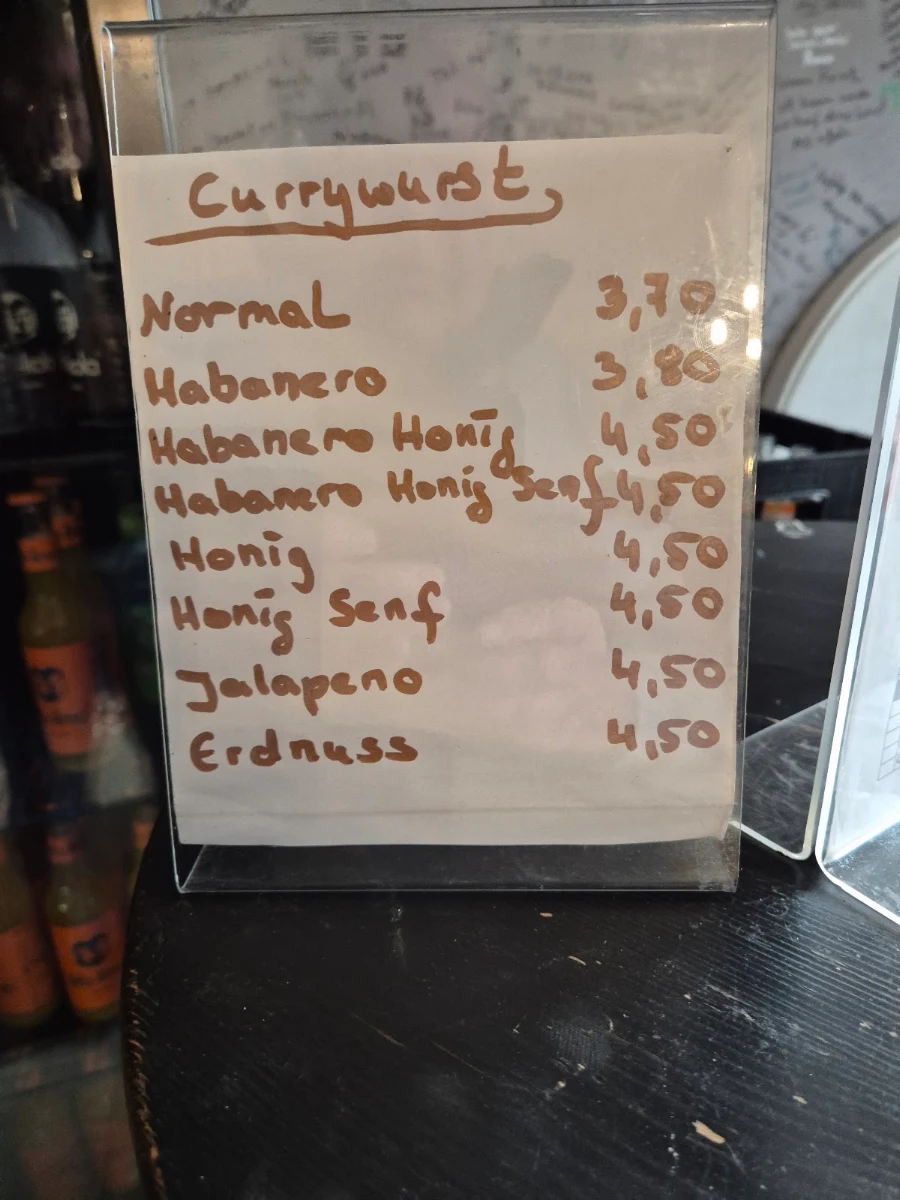 Currywurst
Normal 3,70
Habanero 3,80
Habanero Honig 4,50
Habanero Honig Senf 4,50
Honig 4,50
Honig Senf 4,50
Jalapeno 4,50
Erdnuss 4,50